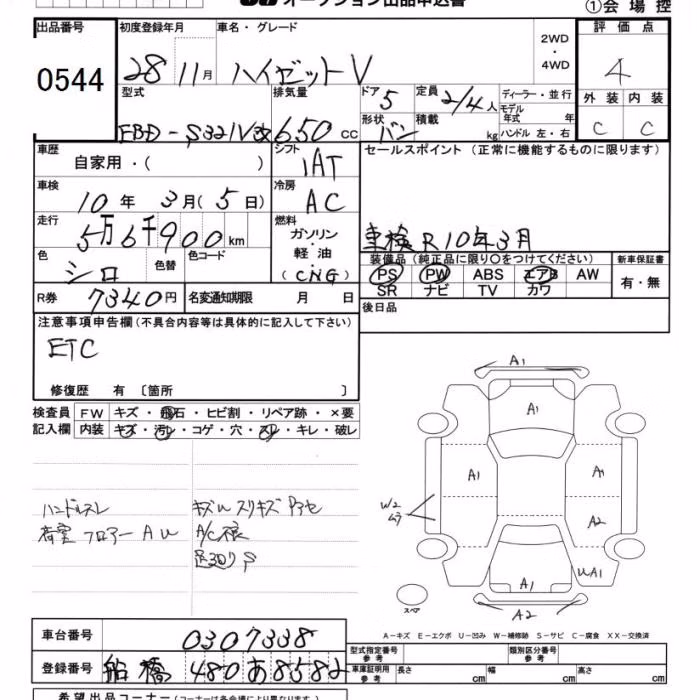 オークション出品申込書
①会場控
出品番号
0544
初度登録年月
28 11月
車名・グレード
ハイゼットV
2WD
・
4WD
評価点
4
型式
EBD-S321V改
排気量
650 cc
ドア 5
形状 バン
定員 2/4人
積載 kg
ディーラー・並行
モデル
年式 年
ハンドル 左・右
外装 内装
C C
車歴
自家用・( )
シフト
IAT
セールスポイント (正常に機能するものに限ります)
車検R10年3月
車検
10年 3月(5日)
冷房
AC
走行
5万6千900km
燃料
ガソリン
・
軽油
(CNG)
色
シロ
色替
色コード
装備品 (純正品に限り○をつけてください)
PS PW ABS エアB AW
SR ナビ TV カワ
新車保証書
有・無
R券 7340円
名変通知期限 月 日
後日品
注意事項申告欄 (不具合内容等は具体的に記入して下さい)
ETC
修復歴 有 〔箇所 〕
検査員
記入欄
FW キズ・飛石・ヒビ割・リペア跡・×要
内装 キズ・汚レ・コゲ・穴・スレ・キレ・破レ
ハンドルスレ
荷室フロアーAU
キズUスリキズPアセ
A/C不良
A1
A1
A1
A1
W2
ムラ
A2
UA1
A1
A2
スペア
A-キズ E-エクボ U-凹み W-補修跡 S-サビ C-腐食 XX-交換済
車台番号
0307338
登録番号
船橋 480あ8582
型式指定番号
参考
類別区分番号
参考
車庫証明用
参考
長さ cm
幅 cm
高さ cm
希望出品コーナー